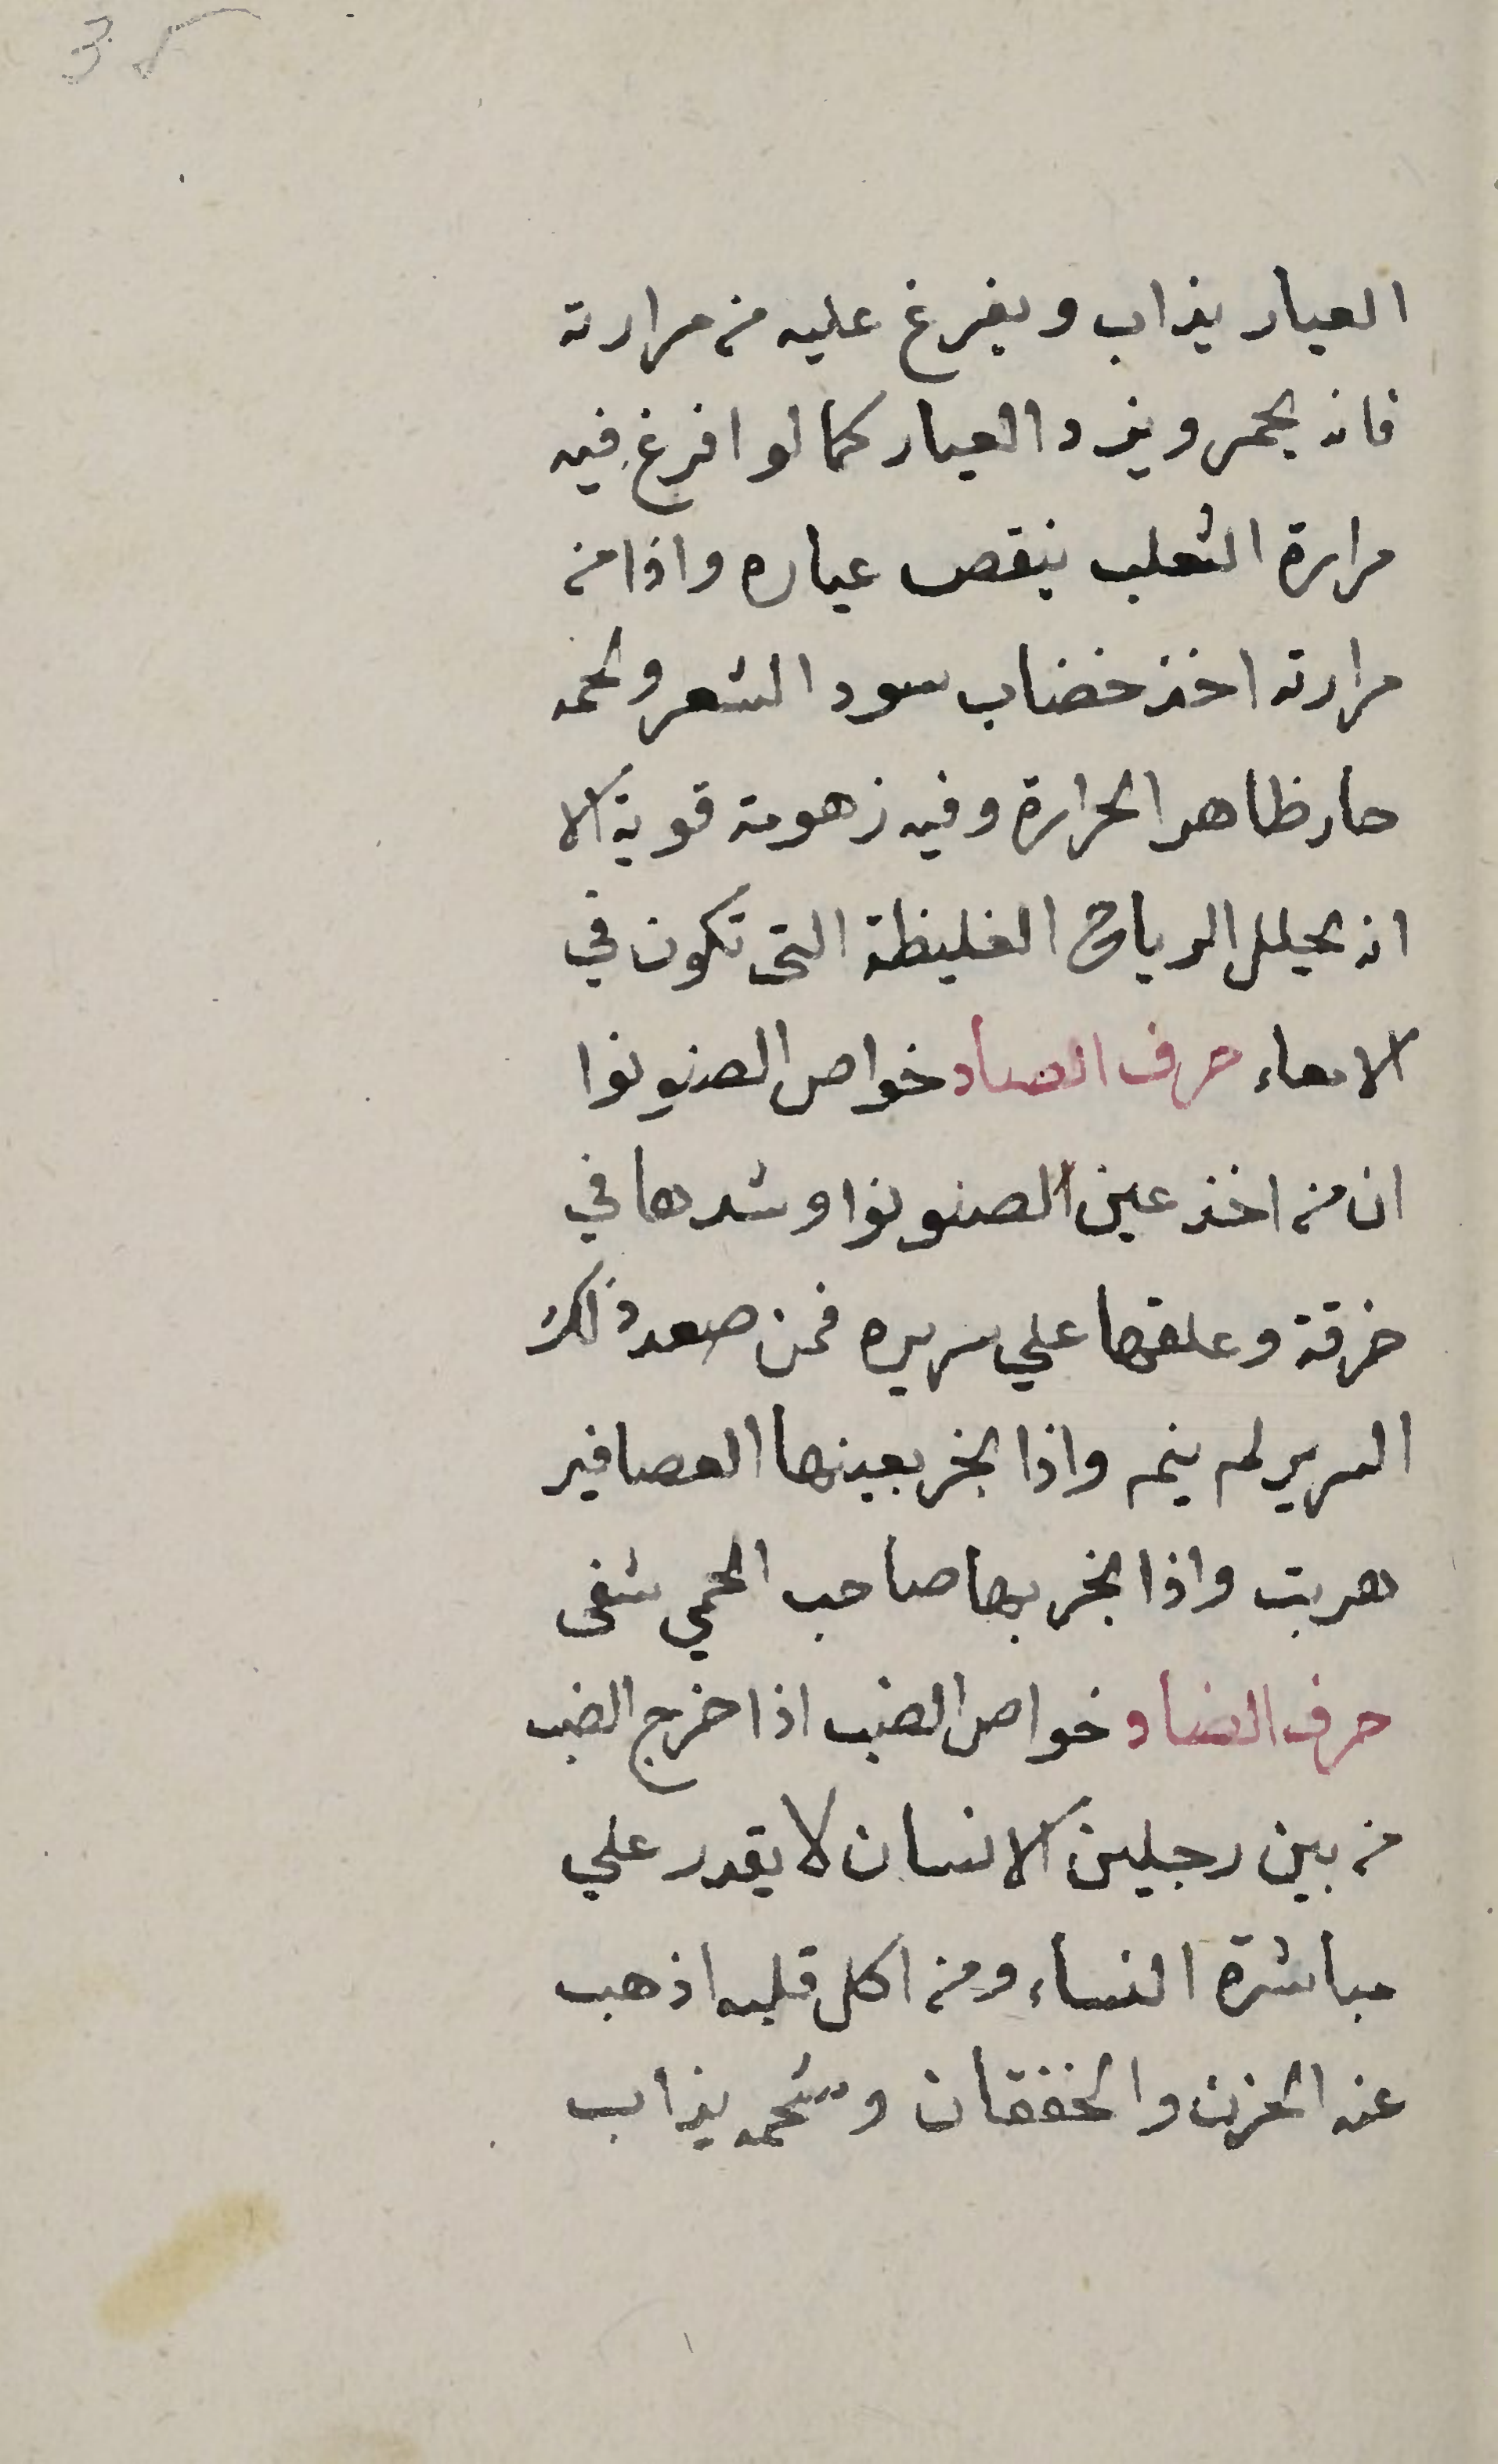 38
العيار يذاب ويفرغ عليه من مرارته
فانه يحمر ويزد العيار كما لو افرغ فيه
مرارة الثعلب ينقص عياره واذا من
مرارته اخذ خضاب سود الشعر ولحمه
حار ظاهر الحرارة وفيه زهومة قوية الا
انه يحلل الرياح الغليظة التى تكون في
الامعاء حرف الصاد خواص الصنونوا
ان من اخذ عين الصنونوا وشدها في
خرقة وعلقها علي سريره فمن صعد ذلك
السرير لم ينم واذا بخر بعينها العصافير
هربت واذا بخر بها صاحب الحمي شفى
حرف الضاد خواص الضب اذا خرج الضب
من بين رجلين الانسان لا يقدر علي
مباشرة النساء ومن اكل قلبه اذهب
عنه الحزن والخفقان وشحمه يذاب